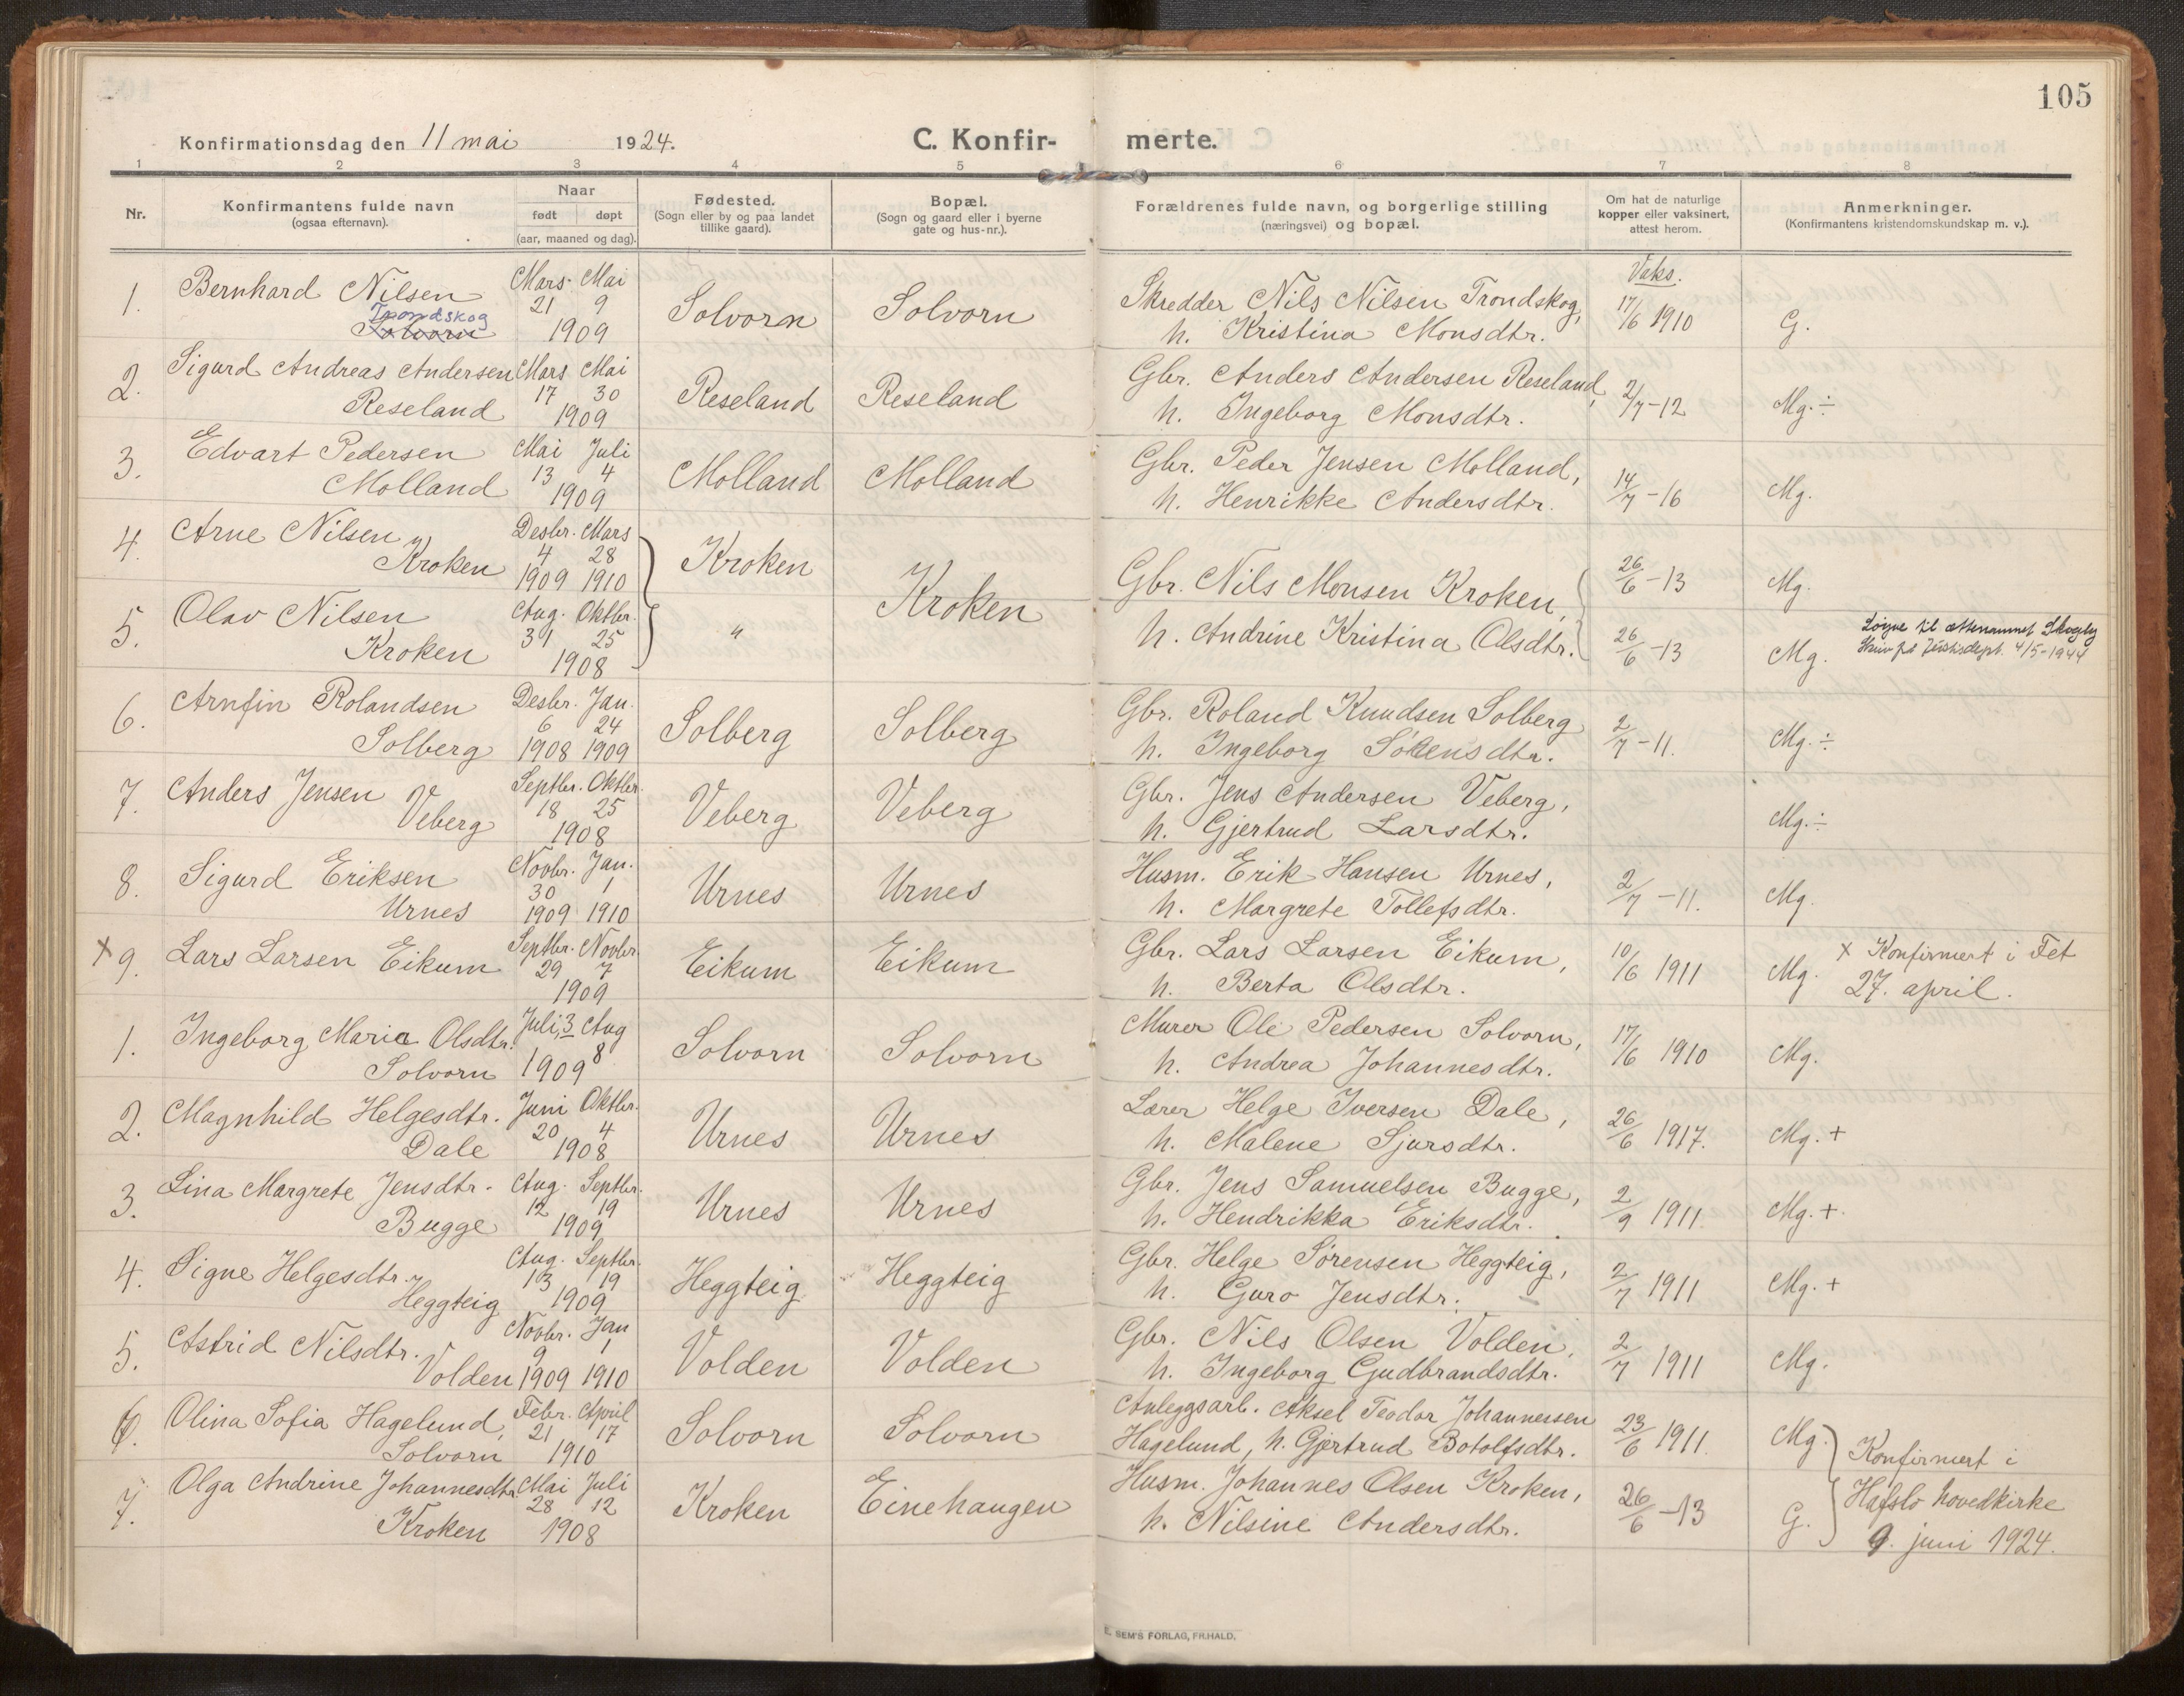 105
Konfirmationsdag den 11 mai 1924. C. Konfir- merte.
1 2 3 4 5 6 7 8
Nr.
Konfirmantens fulde navn
(ogsaa efternavn).
Naar
født døpt
(aar, maaned og dag).
Fødested.
(Sogn eller by og paa landet
tillike gaard).
Bopæl.
(Sogn og gaard eller i byerne
gate og hus-nr.).
Forældrenes fulde navn, og borgerlige stilling
(næringsvei) og bopæl.
Om hat de naturlige
kopper eller vaksinert,
attest herom.
Anmerkninger.
(Konfirmantens kristendomskundskap m. v.).
Vaks.
1. Bernhard Nilsen Mars Mai Solvorn Solvorn Skredder Nils Nilsen Trondskog, 17/6 1910 G.
Trondskog 21 9
Solvorn 1909 h. Kristina Monsdtr.
2. Sigurd Andreas Andersen Mars Mai Reseland Reseland Gbr. Anders Andersen Reseland, 2/7-12 Mg.÷
Reseland 17 30 h. Ingeborg Monsdtr.
1909
3. Edvart Pedersen Mai Juli Molland Molland Gbr. Peder Jensen Molland, 14/7-16 Mg.
Molland 13 4 h. Henrikke Andersdtr.
1909
4. Arne Nilsen Desbr. Mars Kroken Kroken Gbr. Nils Monsen Kroken, 26/6-13 Mg.
Kroken 4 28
1909 1910
5. Olav Nilsen Aug. Oktbr. " h. Andrine Kristina Olsdtr. 26/6-13 Mg. Løyve til ættenamnet Skogly
Kroken 31 25 Justisdept. 4/5-1944
1908
6. Arnfin Rolandsen Desbr. Jan. Solberg Solberg Gbr. Roland Knudsen Solberg 2/7-11. Mg.÷
Solberg 6 24 h. Ingeborg Sørensdtr.
1908 1909
7. Anders Jensen Septbr. Oktbr. Veberg Veberg Gbr. Jens Andersen Veberg, Mg.÷
Veberg 18 25 h. Gjertrud Larsdtr.
1908
8. Sigurd Eriksen Novbr. Jan. Urnes Urnes Husm. Erik Hansen Urnes, 2/7-11. Mg.
Urnes 30 1 h. Margrete Tollefsdtr.
1909 1910
x 9. Lars Larsen Eikum Septbr. Novbr. Eikum Eikum Gbr. Lars Larsen Eikum, 10/6 1911 Mg. x Konfirmert i Fet
29 7 h. Berta Olsdtr. 27. april.
1909
1. Ingeborg Maria Olsdtr. Juli, 3 Aug Solvorn Solvorn Murer Ole Pedersen Solvorn, 17/6 1910 Mg.
Solvorn 1909 8 h. Andrea Johannesdtr.
2. Magnhild Helgesdtr. Juni Oktbr. Urnes Urnes Lærer Helge Iversen Dale, 26/6 1917. Mg.+
Dale 20 4 h. Malene Sjursdtr.
1908
3. Lina Margrete Jensdtr. Aug. Septbr. Urnes Urnes Gbr. Jens Samuelsen Bugge, 2/9 1911. Mg.+.
Bugge 12 19 h. Hendrikka Eriksdtr.
1909
4. Signe Helgesdtr. Aug. Septbr. Heggteig Heggteig Gbr. Helge Sørensen Heggteig, 2/7 1911 Mg.+
Heggteig 13 19 h. Guro Jensdtr.
1909
5. Astrid Nilsdtr. Novbr. Jan Volden Volden Gbr. Nils Olsen Volden, 2/7 1911 Mg.
Volden 9 1 h. Ingeborg Gudbrandsdtr.
1909 1910
6. Olina Sofia Hagelund, Febr. April Solvorn Solvorn Anleggsarb. Aksel Teodor Johannessen 23/6 1911. Mg. Konfirmert i
Solvorn 21 17 Hagelund, h. Gjertrud Botolfsdtr.
1910
7. Olga Andrine Johannesdtr. Mai Juli Kroken Einehaugen Husm. Johannes Olsen Kroken, 26/6-13 G. Hafslo hovedkirke
Kroken 28 12 h. Nilsine Andersdtr. 9. juni 1924.
1908
SEM'S FORLAG, FR.HALD.